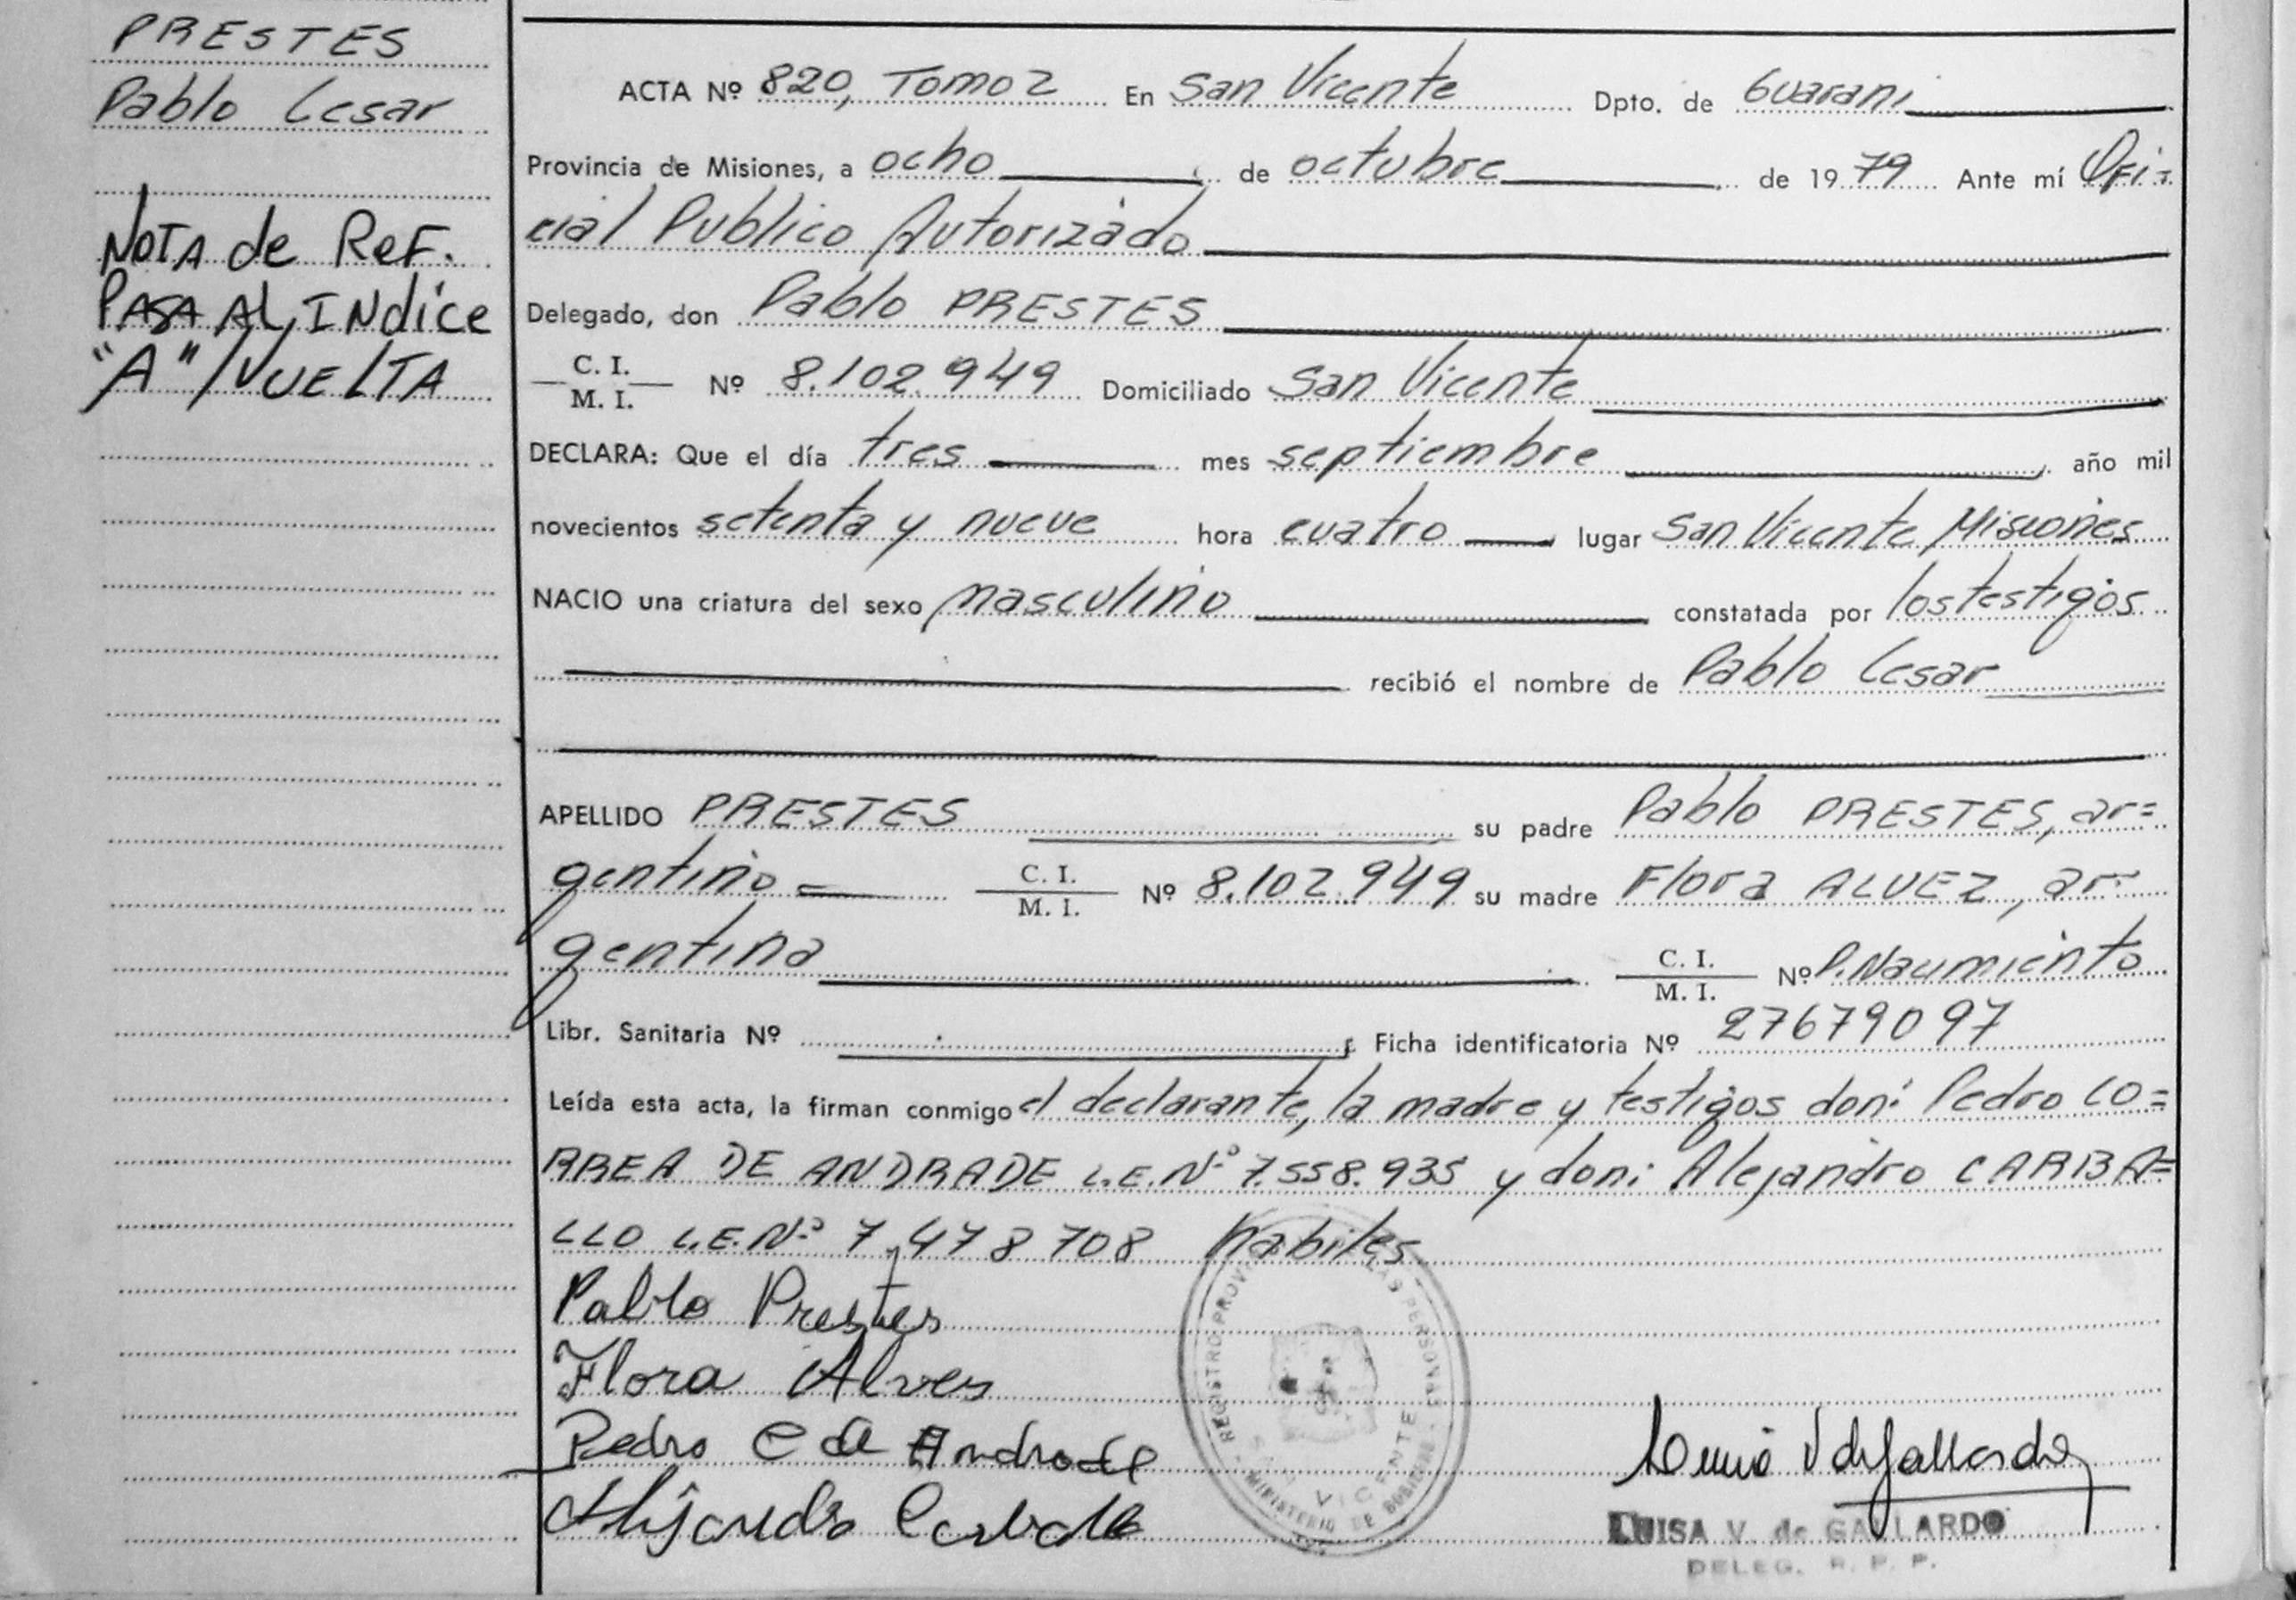 PRESTES
Pablo Cesar
NOTA de ReF.
PASA AL INdice
"A" / VUELTA
ACTA Nº 820, Tomo 2 En San Vicente Dpto. de Guarani
Provincia de Misiones, a ocho de octubre de 19 79 Ante mí Ofi=
cial Publico Autorizado
Delegado, don Pablo PRESTES
C. I.
M. I. Nº 8.102.949 Domiciliado San Vicente
DECLARA: Que el día tres mes septiembre, año mil
novecientos setenta y nueve hora cuatro lugar San Vicente Misiones
NACIO una criatura del sexo masculino constatada por los testigos
recibió el nombre de Pablo Cesar
APELLIDO PRESTES su padre Pablo PRESTES, ar=
gentino = C. I.
M. I. Nº 8.102.949 su madre Flora ALVEZ, ar=
gentina C. I.
M. I. Nº P. Nacimiento
Libr. Sanitaria Nº Ficha identificatoria Nº 27679097
Leída esta acta, la firman conmigo el declarante, la madre y testigos don: Pedro CO=
RREA DE ANDRADE L.E.Nº 7.558.935 y don: Alejandro CARBA=
LLO L.E.Nº 7,478708 habiles
Pablo Prestes
Flora Alves
Pedro C de Andrade
REGISTRO PROV LAS PERSONAS
SAN VICENTE
MINISTERIO DE
LUISA V. de GALLARDO
DELEG. R. P. P.